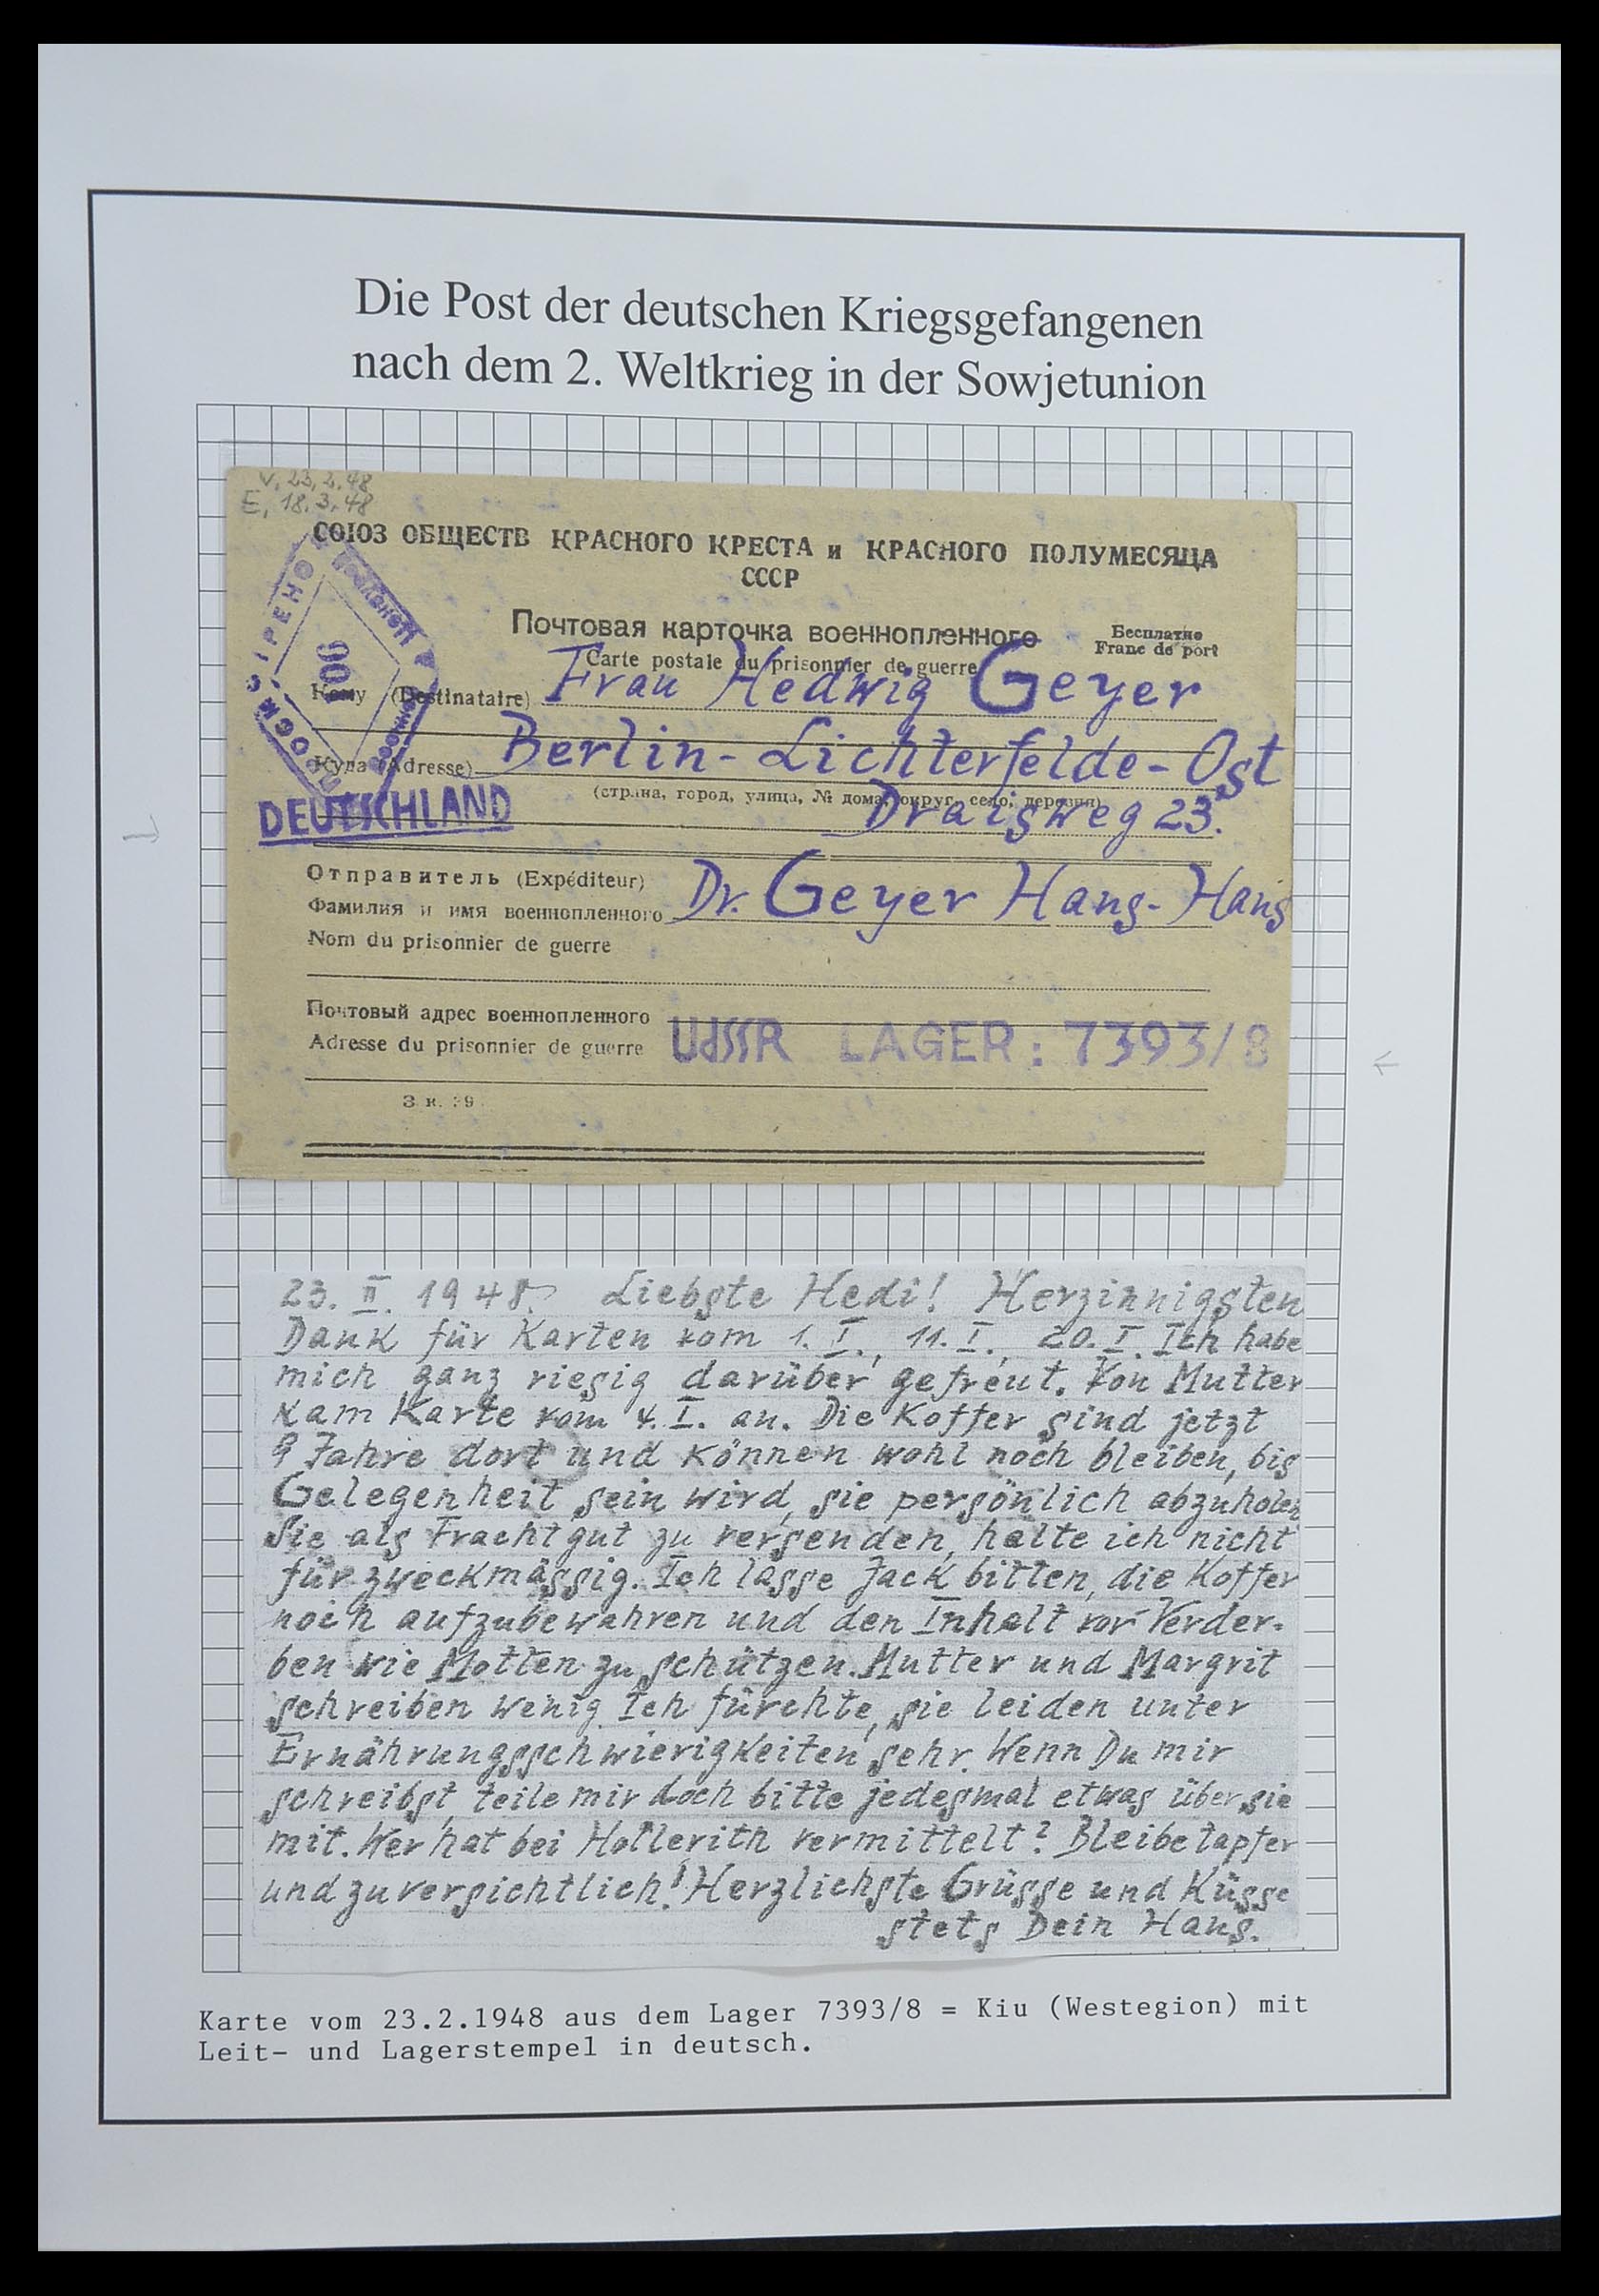 Die Post der deutschen Kriegsgefangenen
nach dem 2. Weltkrieg in der Sowjetunion
V. 23.2.48
E. 18.3.48
СОЮЗ ОБЩЕСТВ КРАСНОГО КРЕСТА и КРАСНОГО ПОЛУМЕСЯЦА
СССР
Почтовая карточка военнопленного
Бесплатно
Carte postale du prisonnier de guerre
Franc de port
Кому (Destinataire) Frau Hedwig Geyer
Куда (Adresse) Berlin-Lichterfelde-Ost
(страна, город, улица, № дома, округ, село, деревня)
Draisweg 23.
DEUTSCHLAND
Отправитель (Expéditeur)
Фамилия и имя военнопленного Dr. Geyer Hans-Hans
Nom du prisonnier de guerre
Почтовый адрес военнопленного
Adresse du prisonnier de guerre UdSSR LAGER: 7393/8
23. II. 1948. Liebste Hedi! Herzinnigsten
Dank für Karten vom 1. I., 11. I., 20. I. Ich habe
mich ganz riesig darüber gefreut. Von Mutter
kam Karte vom 4. I. an. Die Koffer sind jetzt
9 Jahre dort und können wohl noch bleiben, bis
Gelegenheit sein wird, sie persönlich abzuholen
Sie als Frachtgut zu versenden, halte ich nicht
für zweckmässig. Ich lasse Jack bitten, die Koffer
noch aufzubewahren und den Inhalt vor Verder-
ben wie Motten zu schützen. Mutter und Margrit
schreiben wenig. Ich fürchte, sie leiden unter
Ernährungsschwierigkeiten sehr. Wenn Du mir
schreibst, teile mir doch bitte jedesmal etwas über sie
mit. Wer hat bei Hollerith vermittelt? Bleibe tapfer
und zuversichtlich! Herzlichste Grüsse und Küsse
stets Dein Hans.
Karte vom 23.2.1948 aus dem Lager 7393/8 = Kiu (Westegion) mit
Leit- und Lagerstempel in deutsch.